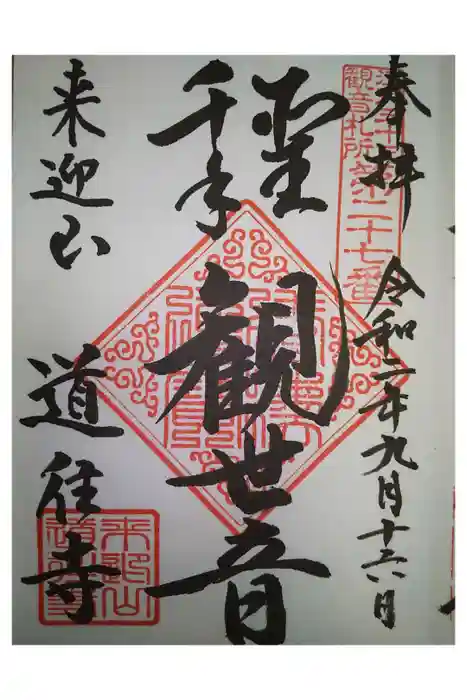 奉拝
令和二年九月十六日
観音札所第二十七番
聖
千手
観世音
来迎山
道往寺